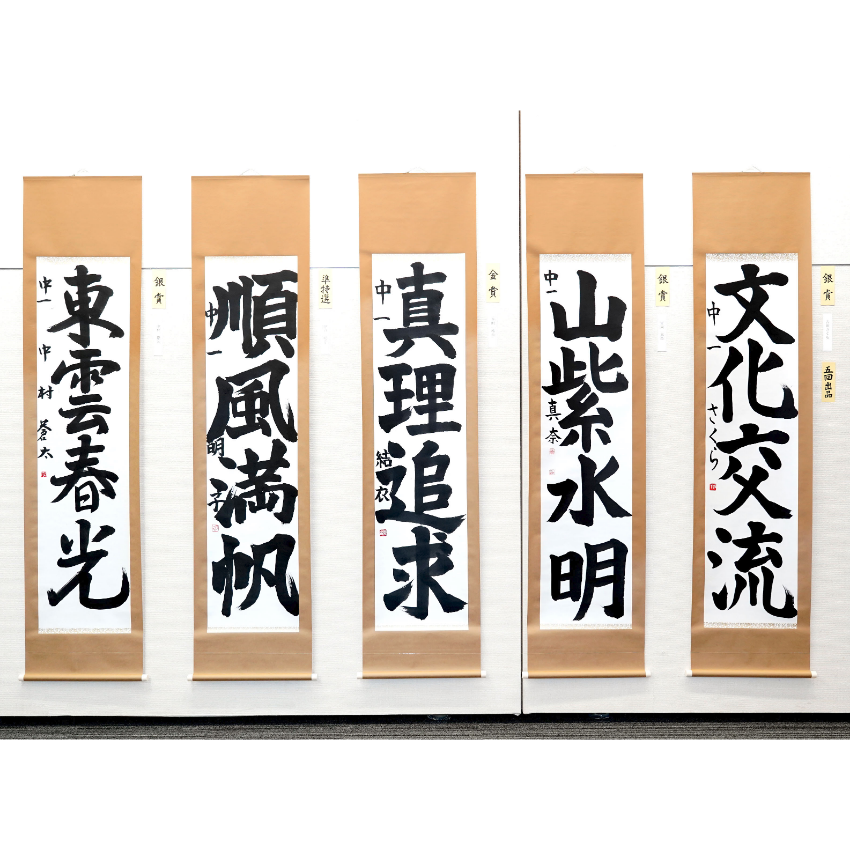 文化交流
中一 さくら
銀賞
五回出品
山紫水明
中一 真奈
銀賞
真理追求
中一 結衣
金賞
順風満帆
中一 明子
準特選
東雲春光
中一 中村 蒼太
銀賞